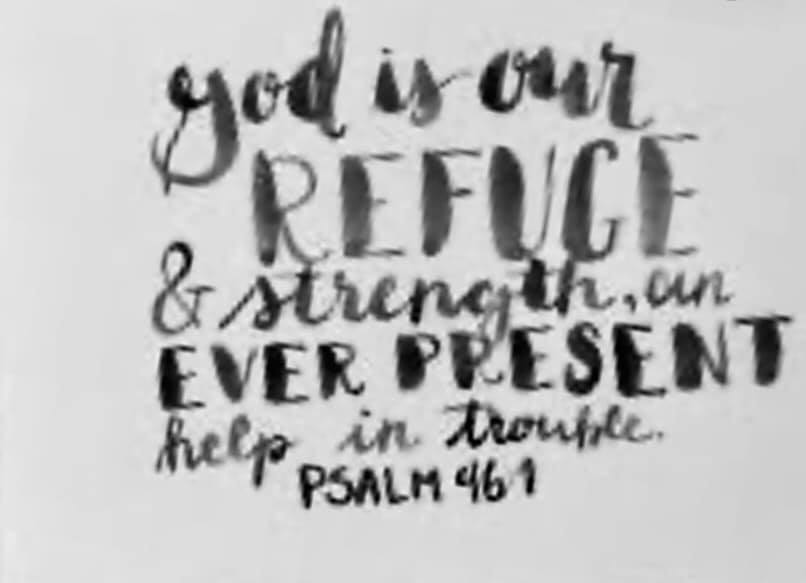 god is our
REFUGE
& strength, an
EVER PRESENT
help in trouble.
PSALM 46 1